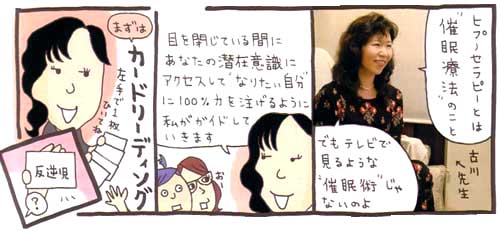 ヒプノセラピーとは
“催眠療法”のこと
古川先生
でもテレビで
見るような
“催眠術”じゃ
ないのよ
目を閉じている間に
あなたの潜在意識に
アクセスして“なりたい自分”
に100%力を注げるように
私がガイドして
いきます
おー
まずは
カードリーディング
左手で1枚
ひいてね
反逆児
?